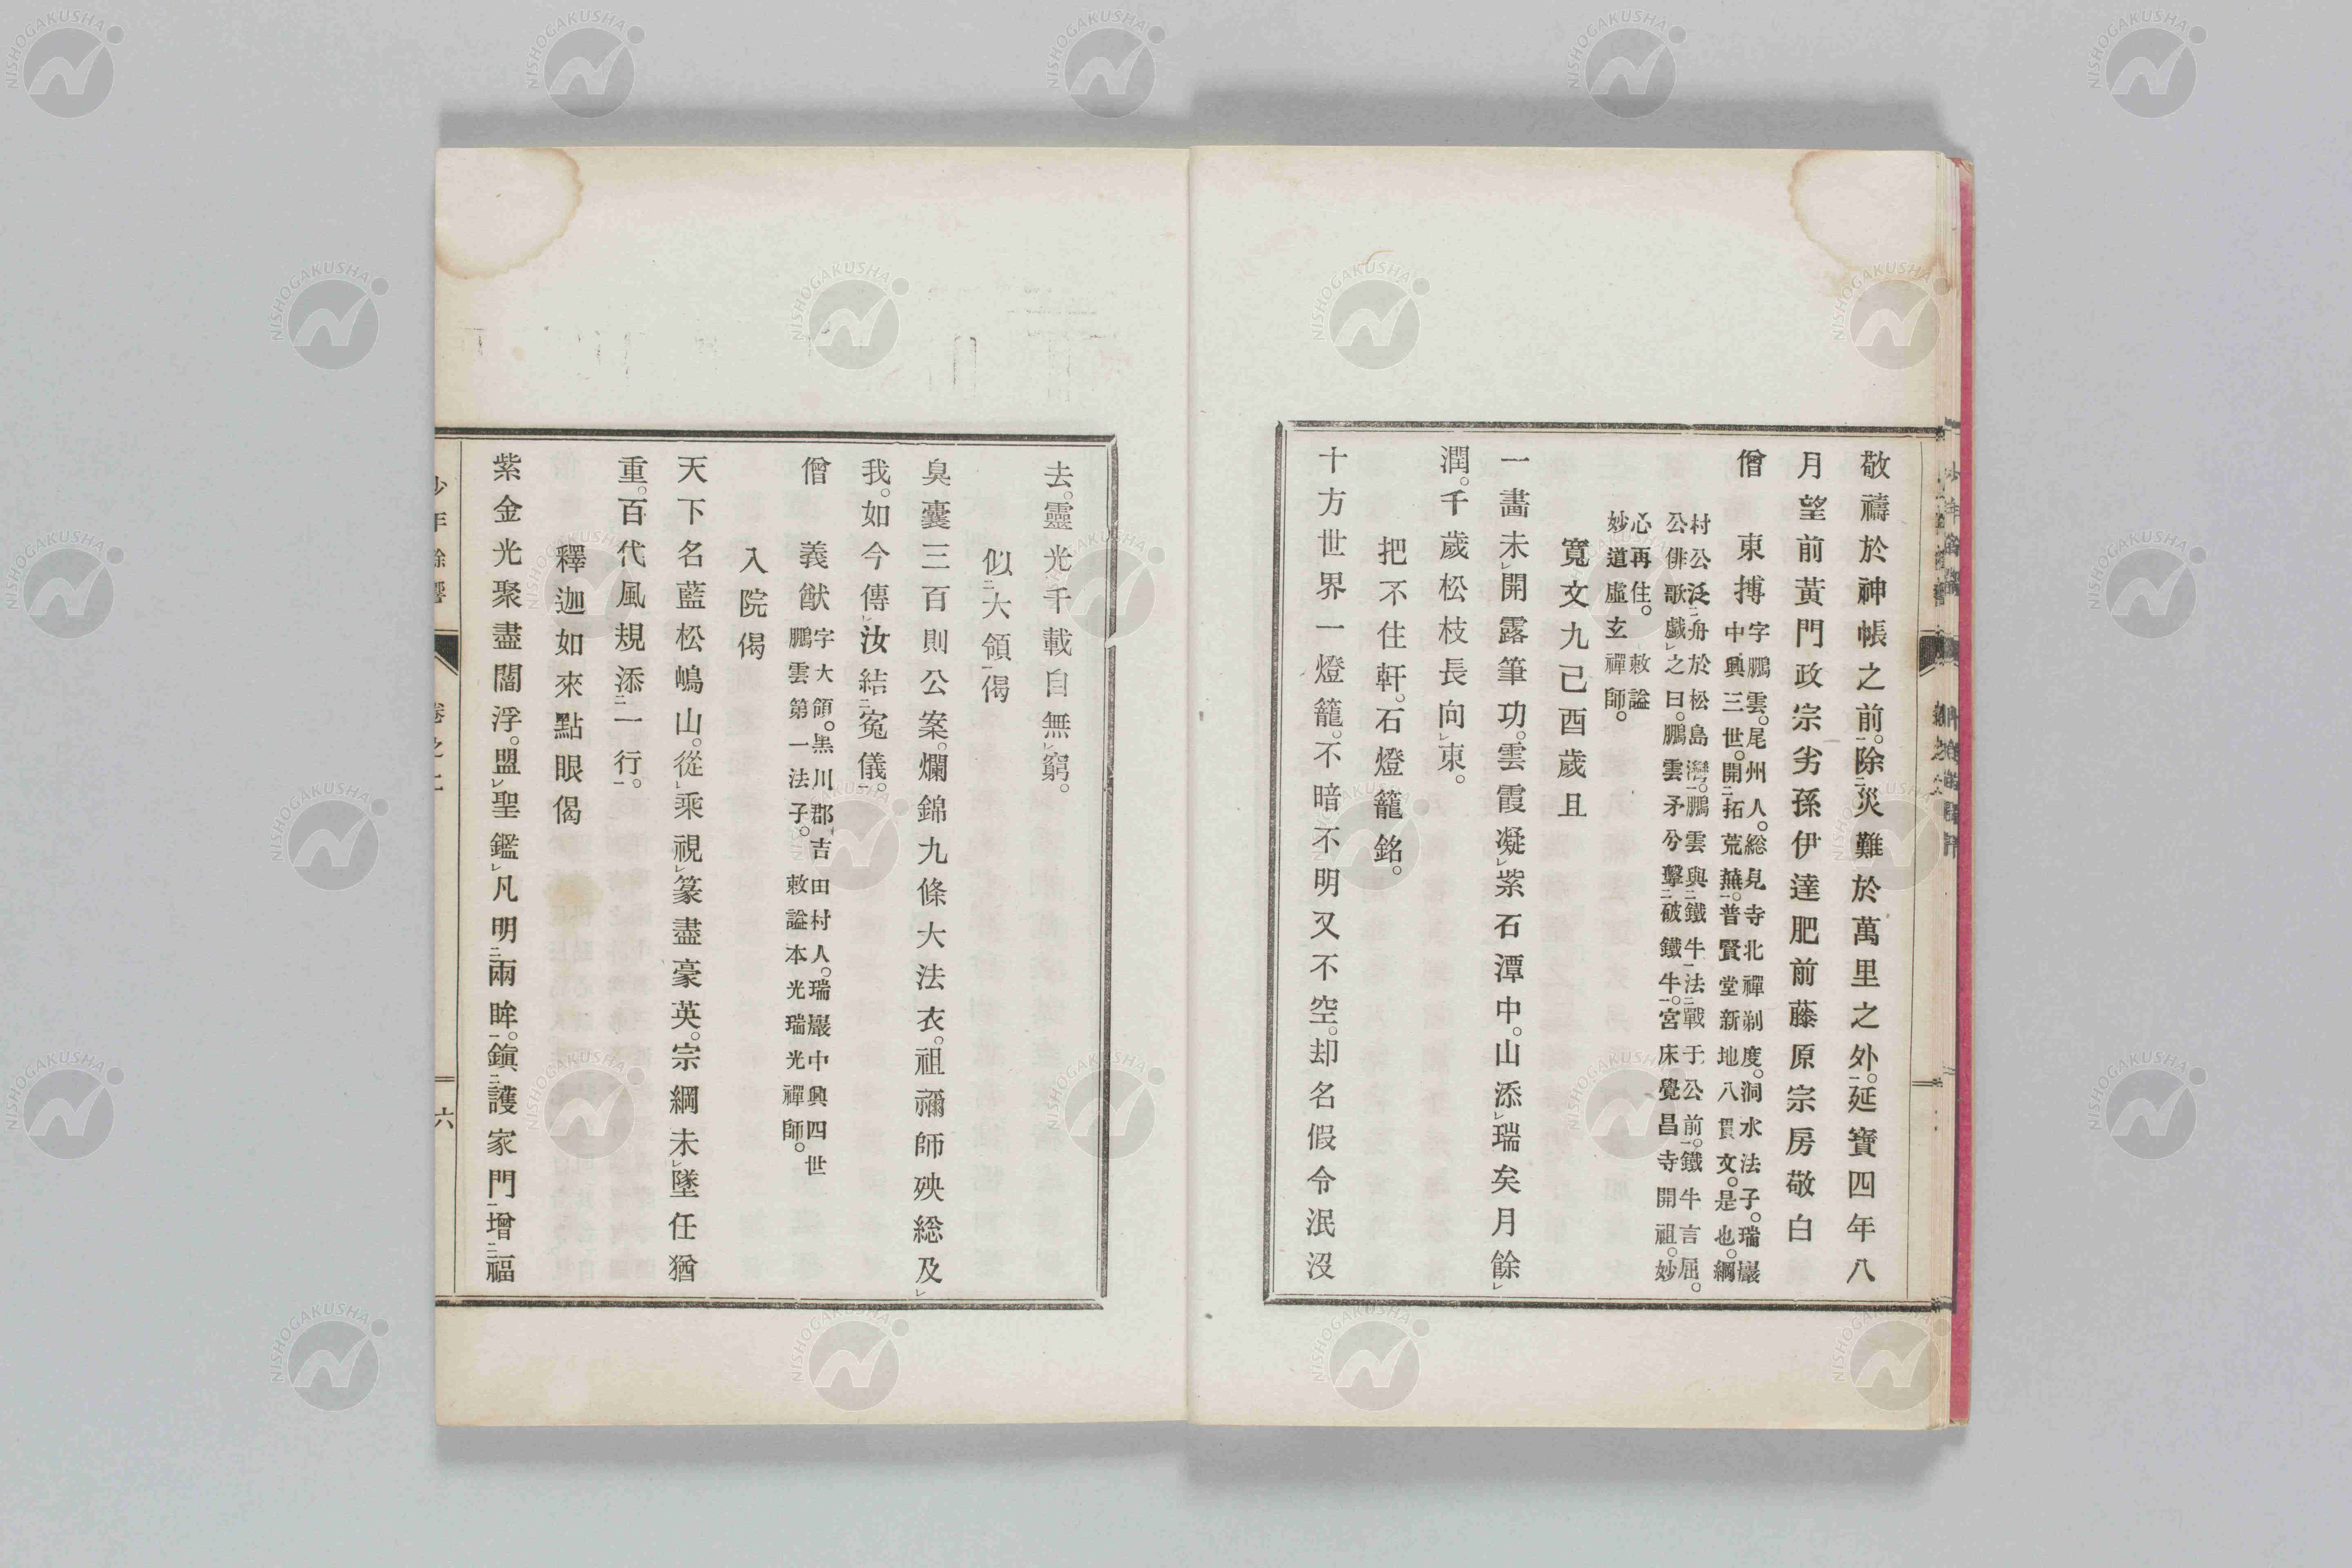 敬禱於神帳之前。除災難於萬里之外。延寶四年八
月望前黃門政宗劣孫伊達肥前藤原宗房敬白
僧　東搏
字鵬雲。尾州人。総見寺北禪剃度。洞水法子。瑞巖
中興三世。開拓荒蕪。普賢堂新地八貫文。是也。綱
村公泛舟於松島灣。鵬雲與鐵牛法戰于公前。鐵牛言屈。
公俳歌戲之曰。鵬雲矛兮擊破鐵牛。宮床覺昌寺開祖。妙
心再住。敕謚
妙道虛玄禪師。
寬文九己酉歲且
一畵未開露筆功。雲霞凝紫石潭中。山添瑞矣月餘
潤。千歲松枝長向東。
把不住軒。石燈籠銘。
十方世界一燈籠。不暗不明又不空。却名假令泯沒
去。靈光千載自無窮。
似大領偈
臭嚢三百則公案。爛錦九條大法衣。祖禰師殃総及
我。如今傳汝結寃儀。
僧　義猷
字大領。黑川郡吉田村人。瑞巖中興四世
鵬雲第一法子。敕謚本光瑞光禪師。
入院偈
天下名藍松嶋山。從乘視篆盡豪英。宗綱未墜任猶
重。百代風規添一行。
釋迦如來點眼偈
紫金光聚盡閻浮。盟聖鑑凡明兩眸。鎭護家門增福
六
NISHOGAKUSHA